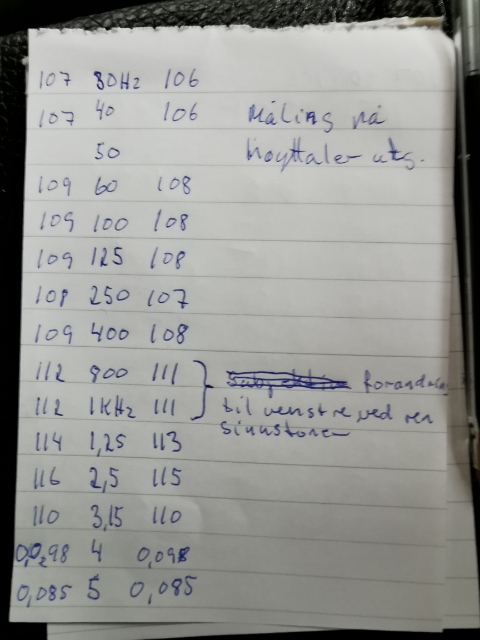 107 80Hz 106
107 40 106 Måling på
50 høyttaler utg.
109 60 108
109 100 108
109 125 108
108 250 107
109 400 108
112 900 111
112 1KHz 111 til venstre ved ren
114 1,25 113 sinustoner
116 2,5 115
110 3,15 110
0,098 4 0,098
0,085 5 0,085